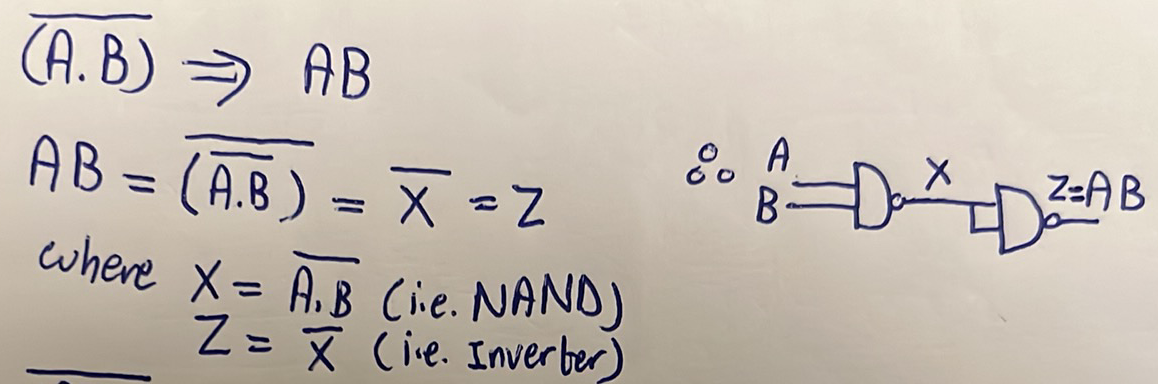 $\overline{(A.B)} \Rightarrow AB$
$AB = \overline{(\overline{A.B})} = \overline{X} = Z$
where $X = \overline{A.B}$ (i.e. NAND)
$Z = \overline{X}$ (i.e. Inverter)
∴ A
B
X
Z=AB